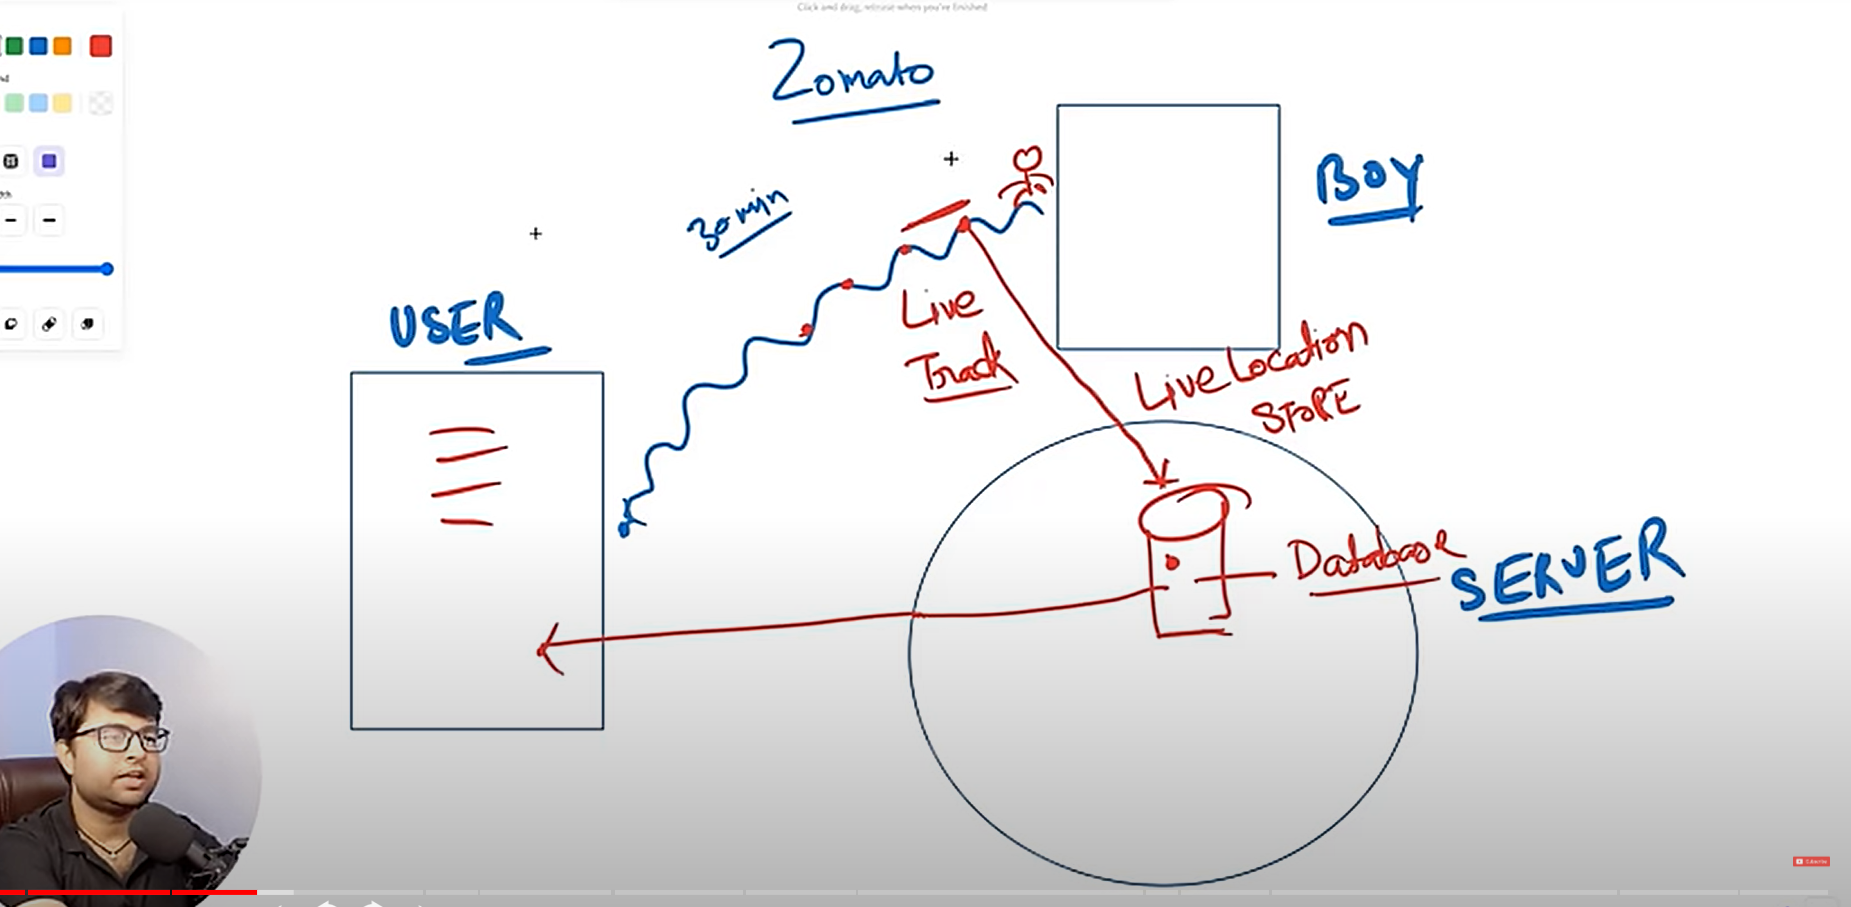 Click and drag, release when you're finished
Zomato
BOY
30 min
USER
Live
Track
Live Location
STORE
Database
SERVER
Subscribe